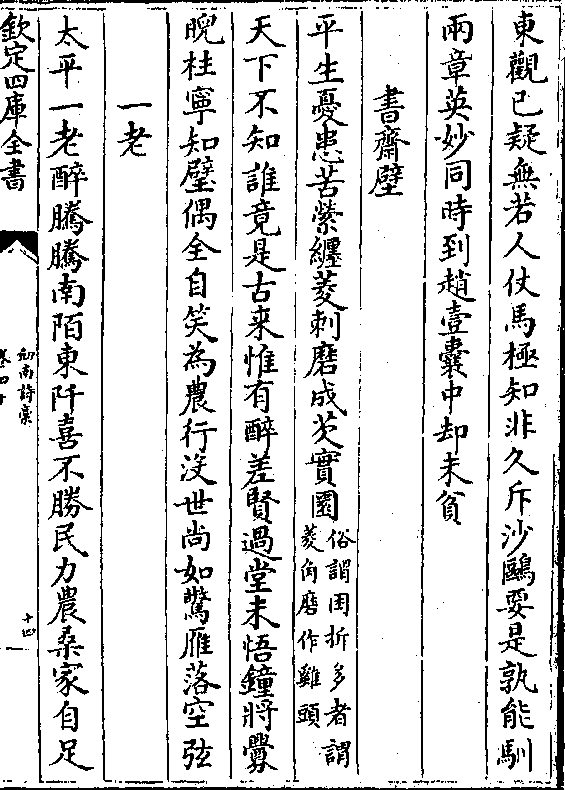 東觀已疑無若人仗馬極知非久斥沙鷗要是孰能馴
兩章英妙同時到趙壹囊中却未貧
書齋壁
平生憂患苦縈纏菱刺磨成芡實圓俗謂困折多者謂
菱角磨作雞頭
天下不知誰竟是古来惟有醉差賢過堂未悟鐘將釁
睨柱寧知璧偶全自笑為農行没世尚如驚雁落空弦
一老
太平一老醉騰騰南陌東阡喜不勝民力農桑家自足
欽定四庫全書
劍南詩稾
卷四十
十四